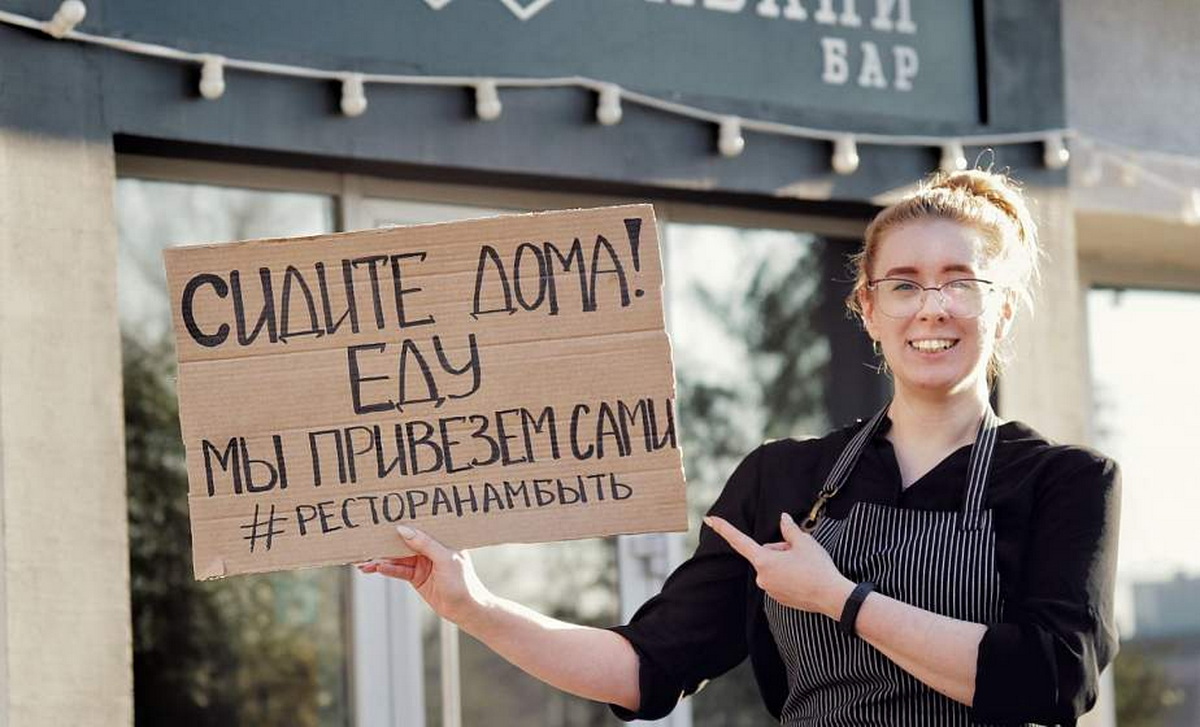 БАР
СИДИТЕ ДОМА!
ЕДУ
МЫ ПРИВЕЗЕМ САМИ
#РЕСТОРАНАМБЫТЬ